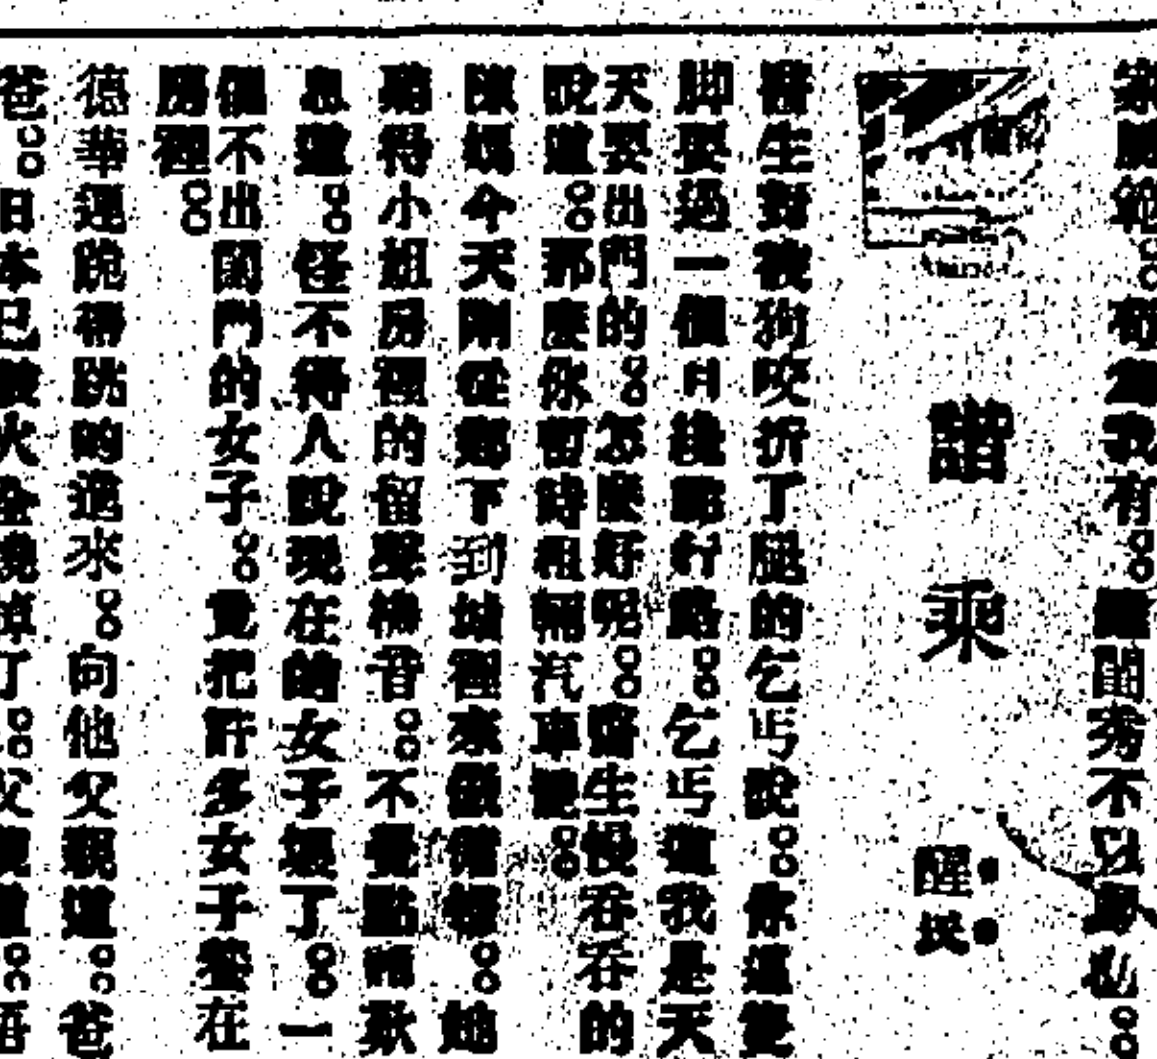 範。。我有。。雖閨秀不以為。。
諧乘
醒
醫生對被狗咬折了腿的乞丐說。。你這隻
脚要過一個月後能行路。。乞丐道我是天
天要出門的。。怎麼好呢。。醫生慢吞吞的
說道。。那麼你暫時租輛汽車罷。。
陳媽今天剛從鄉下到城裡來做傭婦。。她
聽得小姐房裡的留聲機音。。不覺點頭歎
息道。。怪不得人說現在的女子壞了。。一
個不出閨門的女子。。竟把許多女子養在
房裡。。
德華連跑帶跳的進來。。向他父親道。。爸
爸。。日本已被火全燒掉了。。父親道。。